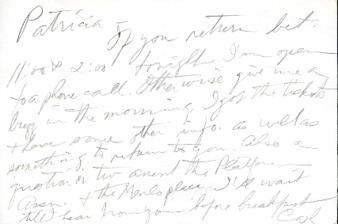 Patricia If you return bet.
11:00 & 2:00 tonight I'm open
to a phone call. Otherwise give me a
in the morning. I got the tickets
& have some other info. as well as
something to return to you. Also a
question or two anent the Platform
Assn. & the place. I'll wait
till I hear from you before breakfast